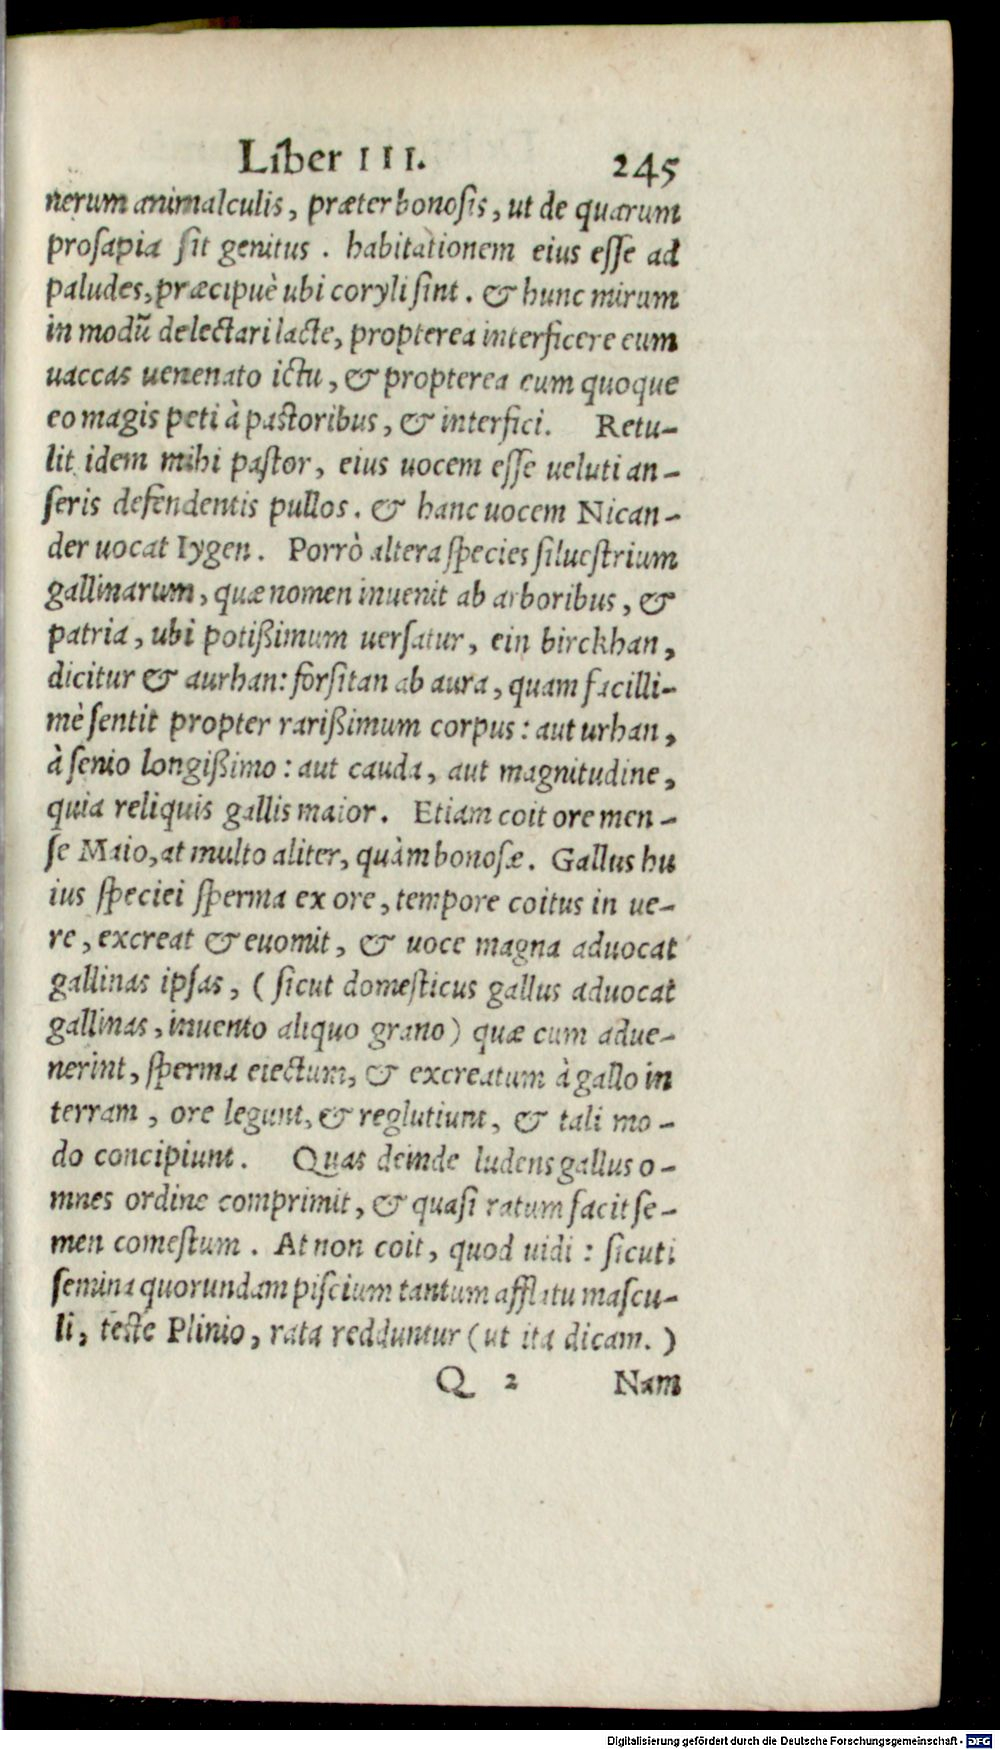 Liber III. 245
nerum animalculis, præter bonosis, ut de quarum
prosapia sit genitus. habitationem eius esse ad
paludes, præcipuè ubi coryli sint. & hunc mirum
in modũ delectari lacte, propterea interficere eum
uaccas uenenato ictu, & propterea eum quoque
eo magis peti à pastoribus, & interfici. Retu-
lit idem mihi pastor, eius uocem esse ueluti an-
seris defendentis pullos. & hanc uocem Nican-
der uocat Iygen. Porrò altera species siluestrium
gallinarum, quæ nomen inuenit ab arboribus, &
patria, ubi potißimum uersatur, ein birckhan,
dicitur & aurhan: forsitan ab aura, quam facilli-
mè sentit propter rarißimum corpus: aut urhan,
à senio longißimo: aut cauda, aut magnitudine,
quia reliquis gallis maior. Etiam coit ore men-
se Maio, at multo aliter, quàm bonosæ. Gallus hu
ius speciei sperma ex ore, tempore coitus in ue-
re, excreat & euomit, & uoce magna aduocat
gallinas ipsas, (sicut domesticus gallus aduocat
gallinas, inuento aliquo grano) quæ cum adue-
nerint, sperma eiectum, & excreatum à gallo in
terram, ore legunt, & reglutiunt, & tali mo-
do concipiunt. Quas deinde ludens gallus o-
mnes ordine comprimit, & quasi ratum facit se-
men comestum. At non coit, quod uidi: sicuti
semina quorundam piscium tantum afflatu mascu-
li, teste Plinio, rata redduntur (ut ita dicam.)
Q 2 Nam
Digitalisierung gefördert durch die Deutsche Forschungsgemeinschaft - DFG